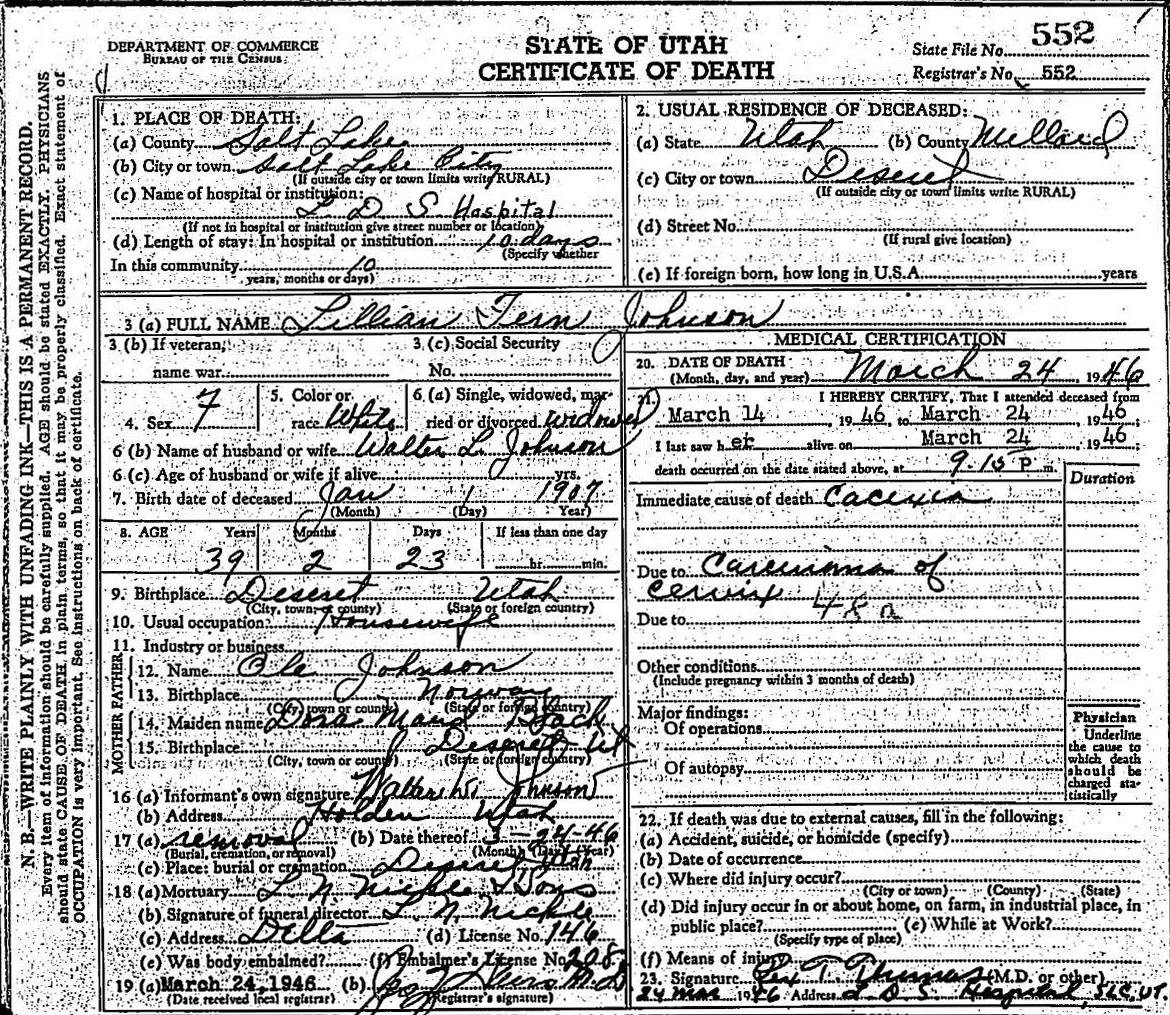 552
DEPARTMENT OF COMMERCE
BUREAU OF THE CENSUS
STATE OF UTAH
CERTIFICATE OF DEATH
State File No. 552
Registrar's No. 552
N. B.—WRITE PLAINLY WITH UNFADING INK—THIS IS A PERMANENT RECORD.
Every item of information should be carefully supplied. AGE should be stated EXACTLY. PHYSICIANS
should state CAUSE OF DEATH in plain terms, so that it may be properly classified. Exact statement of
OCCUPATION is very important. See instructions on back of certificate.
1. PLACE OF DEATH:
(a) County Salt Lake
(b) City or town Salt Lake City
(If outside city or town limits write RURAL)
(c) Name of hospital or institution:
L D S Hospital
(If not in hospital or institution give street number or location)
(d) Length of stay: In hospital or institution 10 days
(Specify whether
In this community 10
years, months or days)
2. USUAL RESIDENCE OF DECEASED:
(a) State Utah (b) County Millard
(c) City or town Deseret
(If outside city or town limits write RURAL)
(d) Street No.
(If rural give location)
(e) If foreign born, how long in U.S.A. years
3 (a) FULL NAME Lillian Fern Johnson
3 (b) If veteran,
name war
3. (c) Social Security
No.
4. Sex F
5. Color or
race White
6. (a) Single, widowed, mar-
ried or divorced widowed
6 (b) Name of husband or wife Walter L. Johnson
6 (c) Age of husband or wife if alive yrs.
7. Birth date of deceased Jan 1 1907
(Month) (Day) (Year)
8. AGE Years Months Days If less than one day
39 2 23 hr. min.
9. Birthplace Deseret Utah
(City, town, or county) (State or foreign country)
10. Usual occupation Housewife
11. Industry or business
FATHER
12. Name Ole Johnson
13. Birthplace Norway
(City, town or county) (State or foreign country)
MOTHER
14. Maiden name Dora Maud Black
15. Birthplace Deseret Ut
(City, town or county) (State or foreign country)
16 (a) Informant's own signature Walter W. Johnson
(b) Address Holden Utah
17 (a) removal (b) Date thereof 3-24-46
(Burial, cremation, or removal) (Month) (Day) (Year)
(c) Place: burial or cremation Deseret, Utah
18 (a) Mortuary L. N. Nickle & Sons
(b) Signature of funeral director L. N. Nickle
(c) Address Delta (d) License No. 146
(e) Was body embalmed? (f) Embalmer's License No. 208
19 (a) March 24, 1946 (b) M.D.
(Date received local registrar) (Registrar's signature)
MEDICAL CERTIFICATION
20. DATE OF DEATH
(Month, day, and year) March 24, 1946
21. I HEREBY CERTIFY, That I attended deceased from
March 14 1946, to March 24 1946
I last saw her alive on March 24 1946
death occurred on the date stated above, at 9.15 P m.
Duration
Immediate cause of death Cacexia
Due to Carcinoma of
Cervix 48a
Due to
Other conditions
(Include pregnancy within 3 months of death)
Major findings:
Of operations
Of autopsy
Physician
Underline
the cause to
which death
should be
charged sta-
tistically
22. If death was due to external causes, fill in the following:
(a) Accident, suicide, or homicide (specify)
(b) Date of occurrence
(c) Where did injury occur?
(City or town) (County) (State)
(d) Did injury occur in or about home, on farm, in industrial place, in
public place? (e) While at Work?
(Specify type of place)
(f) Means of injury
23. Signature Rex T. Thomas (M.D. or other)
24 Mar 1946 Address L.D.S. Hospital, SLC, UT.